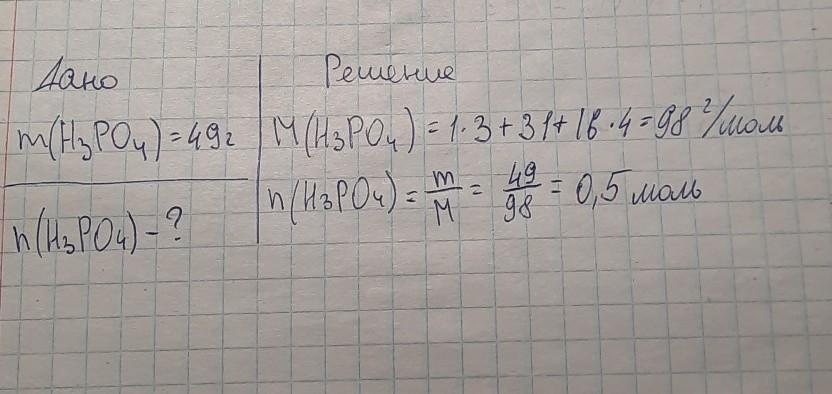 Дано
m(H₃PO₄) = 49г
n(H₃PO₄) - ?
Решение
M(H₃PO₄) = 1·3+31+16·4=98 г/моль
n(H₃PO₄) = m/M = 49/98 = 0,5 моль